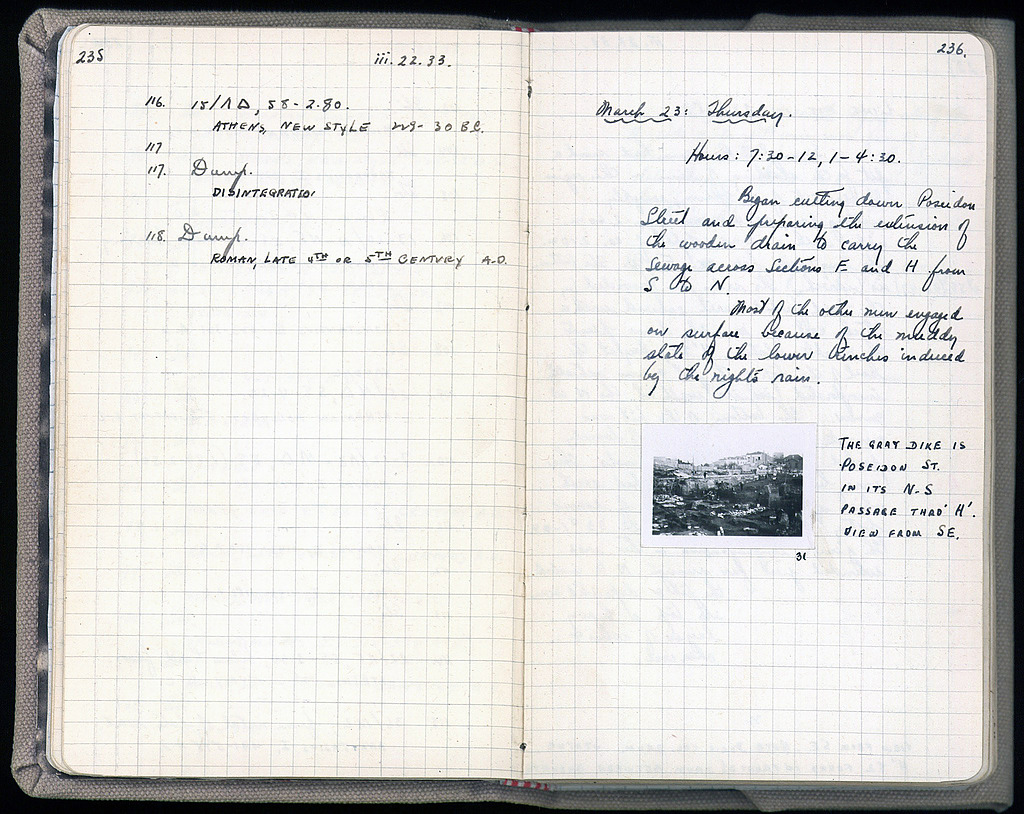 235
iii. 22. 33.
116. 15/ΛΔ, 58 - 2.80.
ATHENS, NEW STYLE 229- 30 B.C.
117
117. Dump.
DISINTEGRATED!
118. Dump.
ROMAN, LATE 4TH OR 5TH CENTURY A.D.
236.
March 23: Thursday.
Hours: 7:30-12, 1-4:30.
Began cutting down Poseidon
Street and preparing the extension of
the wooden drain to carry the
sewage across Sections E and H from
S to N.
Most of the other men engaged
on surface because of the muddy
state of the lower trenches induced
by the night's rain.
THE GRAY DIKE IS
POSEIDON ST.
IN ITS N-S
PASSAGE THRO' 'H'.
VIEW FROM SE.
31